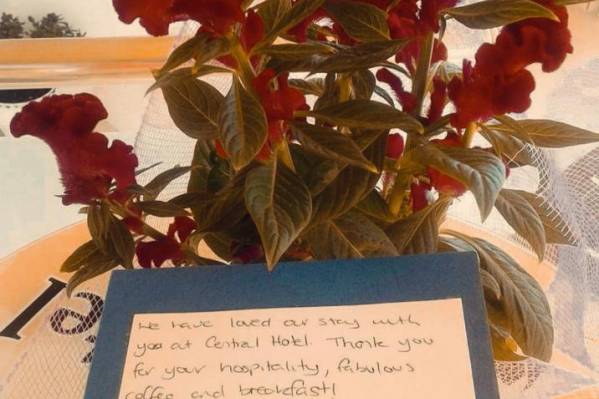 We have loved our stay with
you at Central Hotel. Thank you
for your hospitality, fabulous
coffee and breakfast!